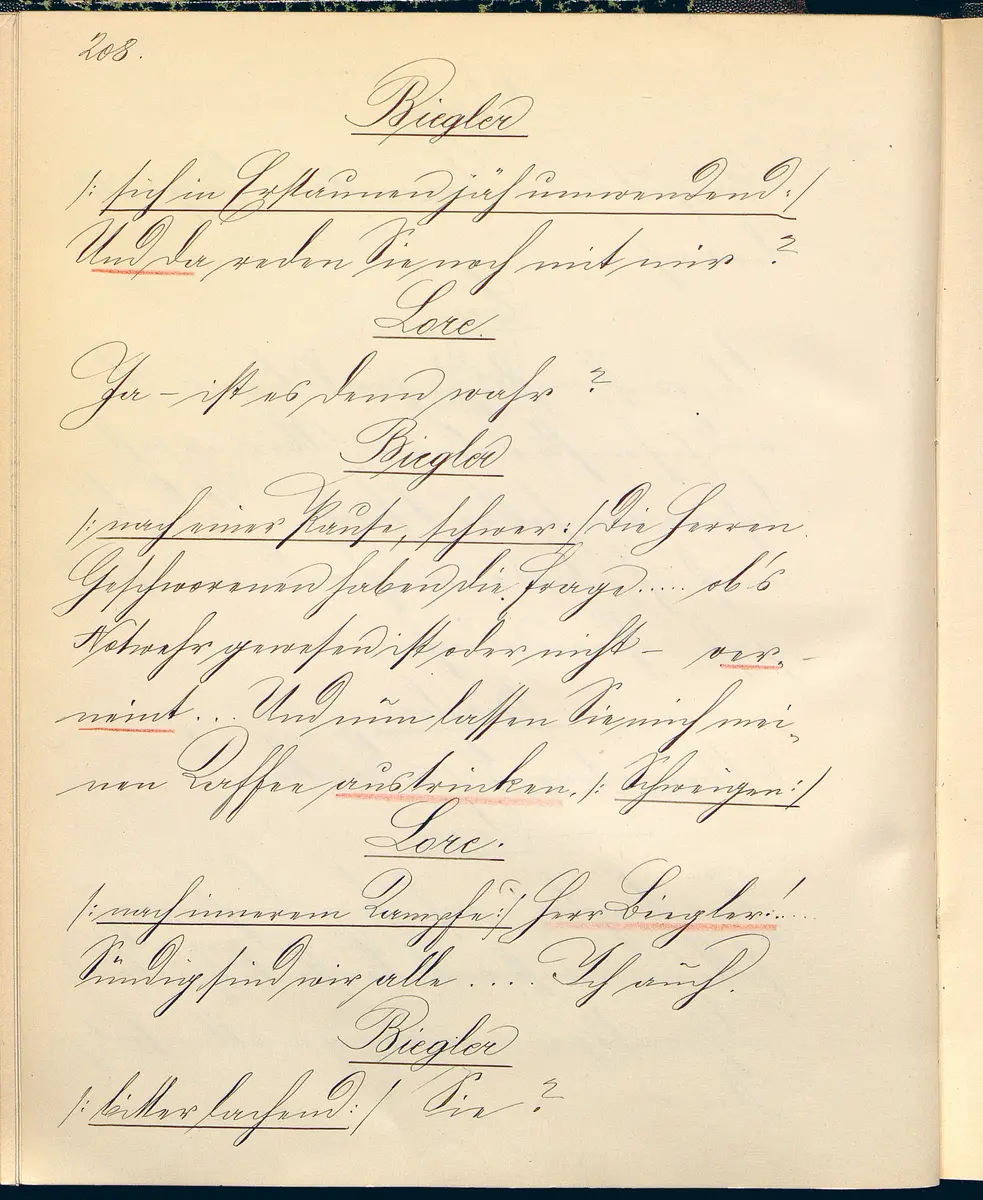 208.
Biegler
/: sich in Erstaunen jäh umwendend :/
Und da reden Sie noch mit mir ?
Lore.
Ja – ist es denn wahr ?
Biegler
/: nach einer Pause, schwer :/ Die Herren
Geschworenen haben die Frage ..... ob's
Notwehr gewesen ist oder nicht – ver-
neint ... Und nun lassen Sie mich mei-
nen Kaffee austrinken. /: Schweigen :/
Lore.
/: nach innerem Kampfe :/ Herr Biegler! ....
Sündig sind wir alle .... Ich auch.
Biegler
/: bitter lachend: / Sie ?